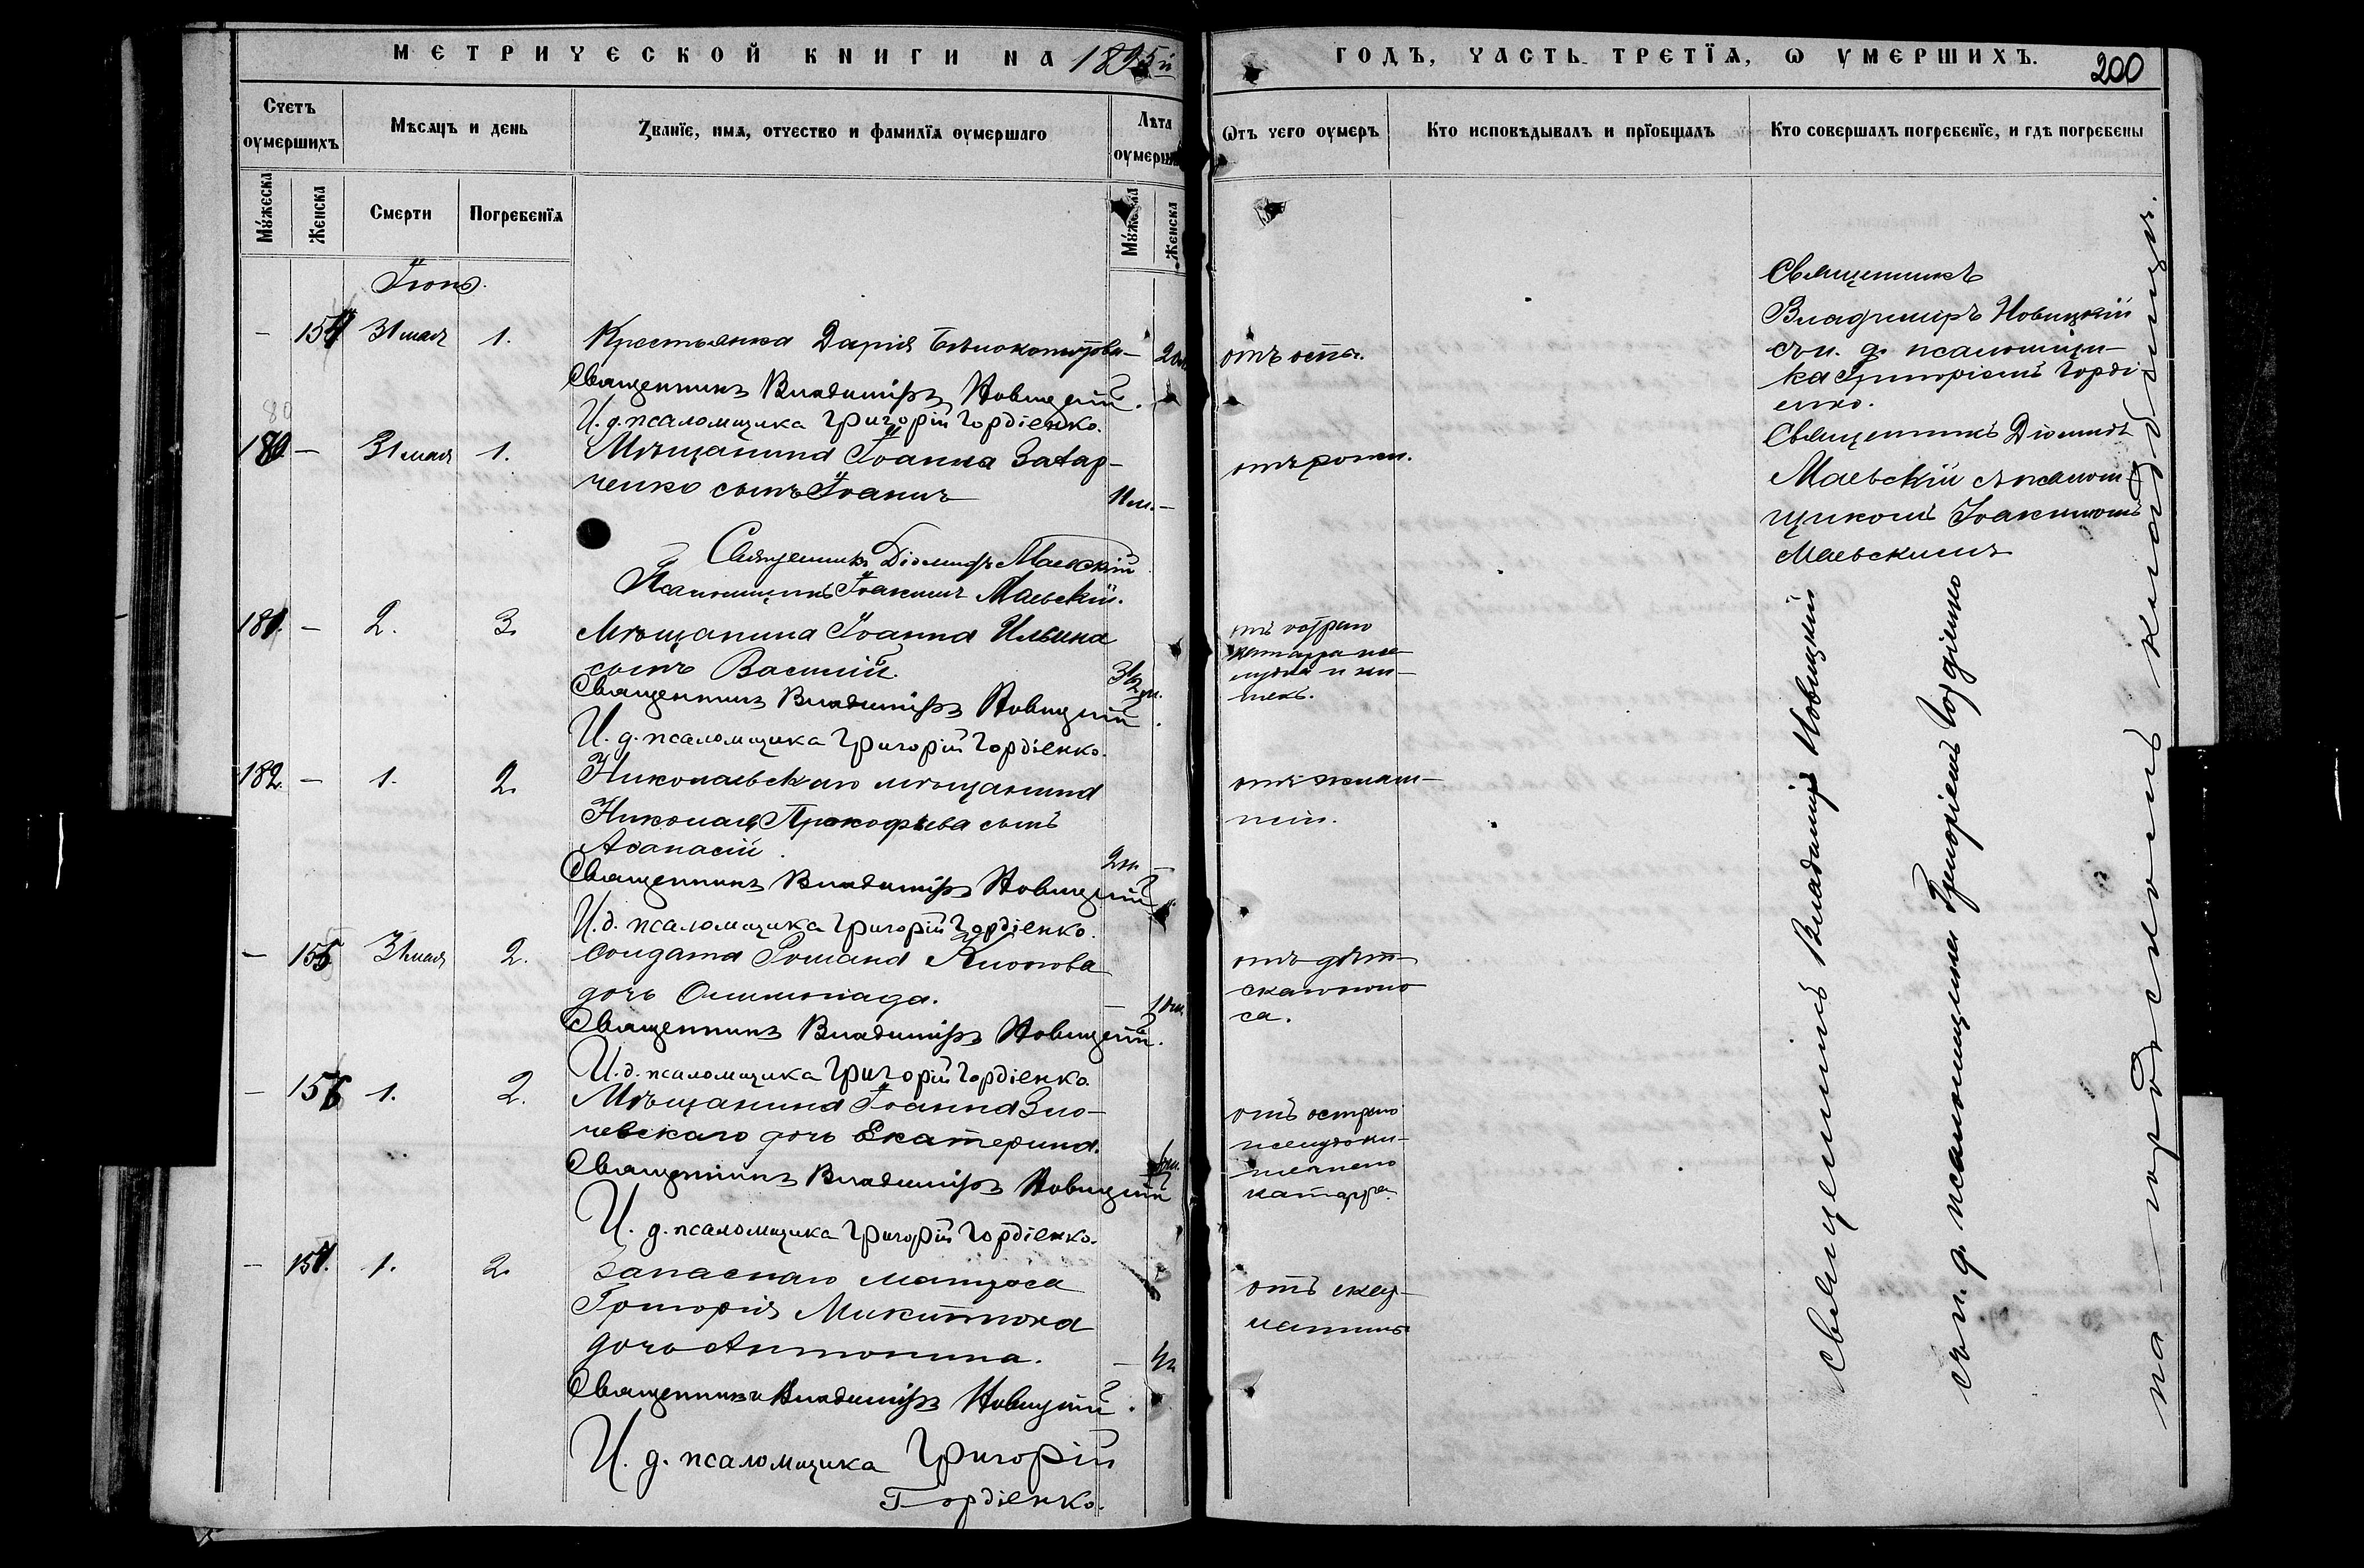 МЕТРИЧЕСКОЙ КНИГИ НА 1895й
ГОДЪ, ЧАСТЬ ТРЕТЇѦ, Ѡ УМЕРШИХЪ.
200
Счетъ оумершихъ
Мѣсѧцъ и день
Званїе, имѧ, отчество и фамилїѧ оумершаго
Лѣта оумерш
Ѿтъ чего оумеръ
Кто исповѣдывалъ и прїобщалъ
Кто совершалъ погребенїе, и гдѣ погребены
Мꙋжеска
Женска
Смерти
Погребенїѧ
Мꙋжеска
Женска
Іюнь.
– 154 31 мая 1.
Крестьянка Дарія
отъ оспы.
Священникъ Владиміръ Новицкій.
И. д. псаломщика Григорій Гордіенко.
Священникъ
Владиміръ Новицкій
съ и. д. псаломщи-
ка Григоріемъ Горді-
енко.
180 – 31 мая 1.
Мѣщанина Іоанна Захар-
ченко сынъ Іоаннъ
11 м. –
Священникъ Діомидъ Маевскій
Псаломщикъ Іоакимъ Маевскій.
Священникъ Діомидъ
Маевскій съ псалом-
щикомъ Іоакимомъ
Маевскимъ
181. – 2. 3.
Мѣщанина Іоанна Ильина
сынъ Василій.
3½ м.
отъ остраго
катарра же-
лудка и ки-
шекъ.
Священникъ Владиміръ Новицкій.
И. д. псаломщика Григорій Гордіенко.
182. – 1. 2.
Николаевскаго мѣщанина
Николая Прокофьева сынъ
Аѳанасій.
Священникъ Владиміръ Новицкій.
И. д. псаломщика Григорій Гордіенко.
– 155 31 мая 2.
Солдата Романа
дочь Олимпіада.
отъ дѣт-
скаго поно-
са.
Священникъ Владиміръ Новицкій.
И. д. псаломщика Григорій Гордіенко.
– 156 1. 2.
Мѣщанина Іоанна Зло-
чевскаго дочь Екатерина.
отъ остраго
желудоки-
шечнаго
катарра.
Священникъ Владиміръ Новицкій
И. д. псаломщика Григорій Гордіенко.
– 157. 1. 2.
Запаснаго матроса
Григорія Микитюка
дочь Антонина.
отъ
Священникъ Владиміръ Новицкій.
И. д. псаломщика Григорій
Гордіенко.
Священникъ Владиміръ Новицкій
съ и. д. псаломщика Григоріемъ Гордіенко
на городскомъ кладбищѣ.